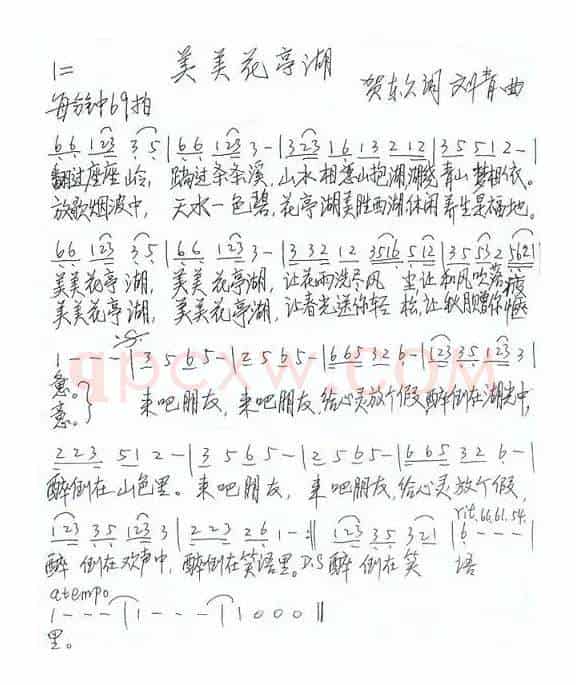 美美花亭湖
1=
贺东久词 刘青曲
每分钟69拍
6 6 1 2 3 3 5 | 6 6 1 2 3 3 - | 3 2 3 1 6 1 3 2 1 2 | 3 5 5 1 2 - |
翻过座座岭， 踏过条条溪， 山水相恋山抱湖湖绕青山梦相依。
放歌烟波中， 天水一色碧， 花亭湖美胜西湖休闲养生是福地。
6 6 1 2 3 3 5 | 6 6 1 2 3 3 - | 3 3 2 1 2 3 5 1 6 5 1 2 | 3 5 5 3 2 5 6 2 1 |
美美花亭湖， 美美花亭湖， 让花雨洗尽风 尘让和风吹落疲
美美花亭湖， 美美花亭湖， 让春光送你轻 松，让秋月赠你惬
1 - - - | 3 5 6 5 - | 2 5 6 5 - | 6 6 5 3 2 6 - | 1 2 3 3 5 1 2 3 3 |
惫。
意。
来吧朋友， 来吧朋友， 给心灵放个假 醉倒在湖光中，
qpcxw.com
2 2 3 5 1 2 - | 3 5 6 5 - | 2 5 6 5 - | 6 6 5 3 2 6 - |
醉倒在山色里。 来吧朋友， 来吧朋友， 给心灵放个假，
rit. 66. 61. 54.
1 2 3 3 5 1 2 3 3 | 2 2 3 2 6 1 - :‖ 1 2 3 3 5 3 2 1 | 6 - - - |
醉 倒在欢声中， 醉倒在笑语里。 D.S 醉 倒在笑 语
a tempo
1 - - - | 1 - - - | 1 0 0 0 ‖
里。